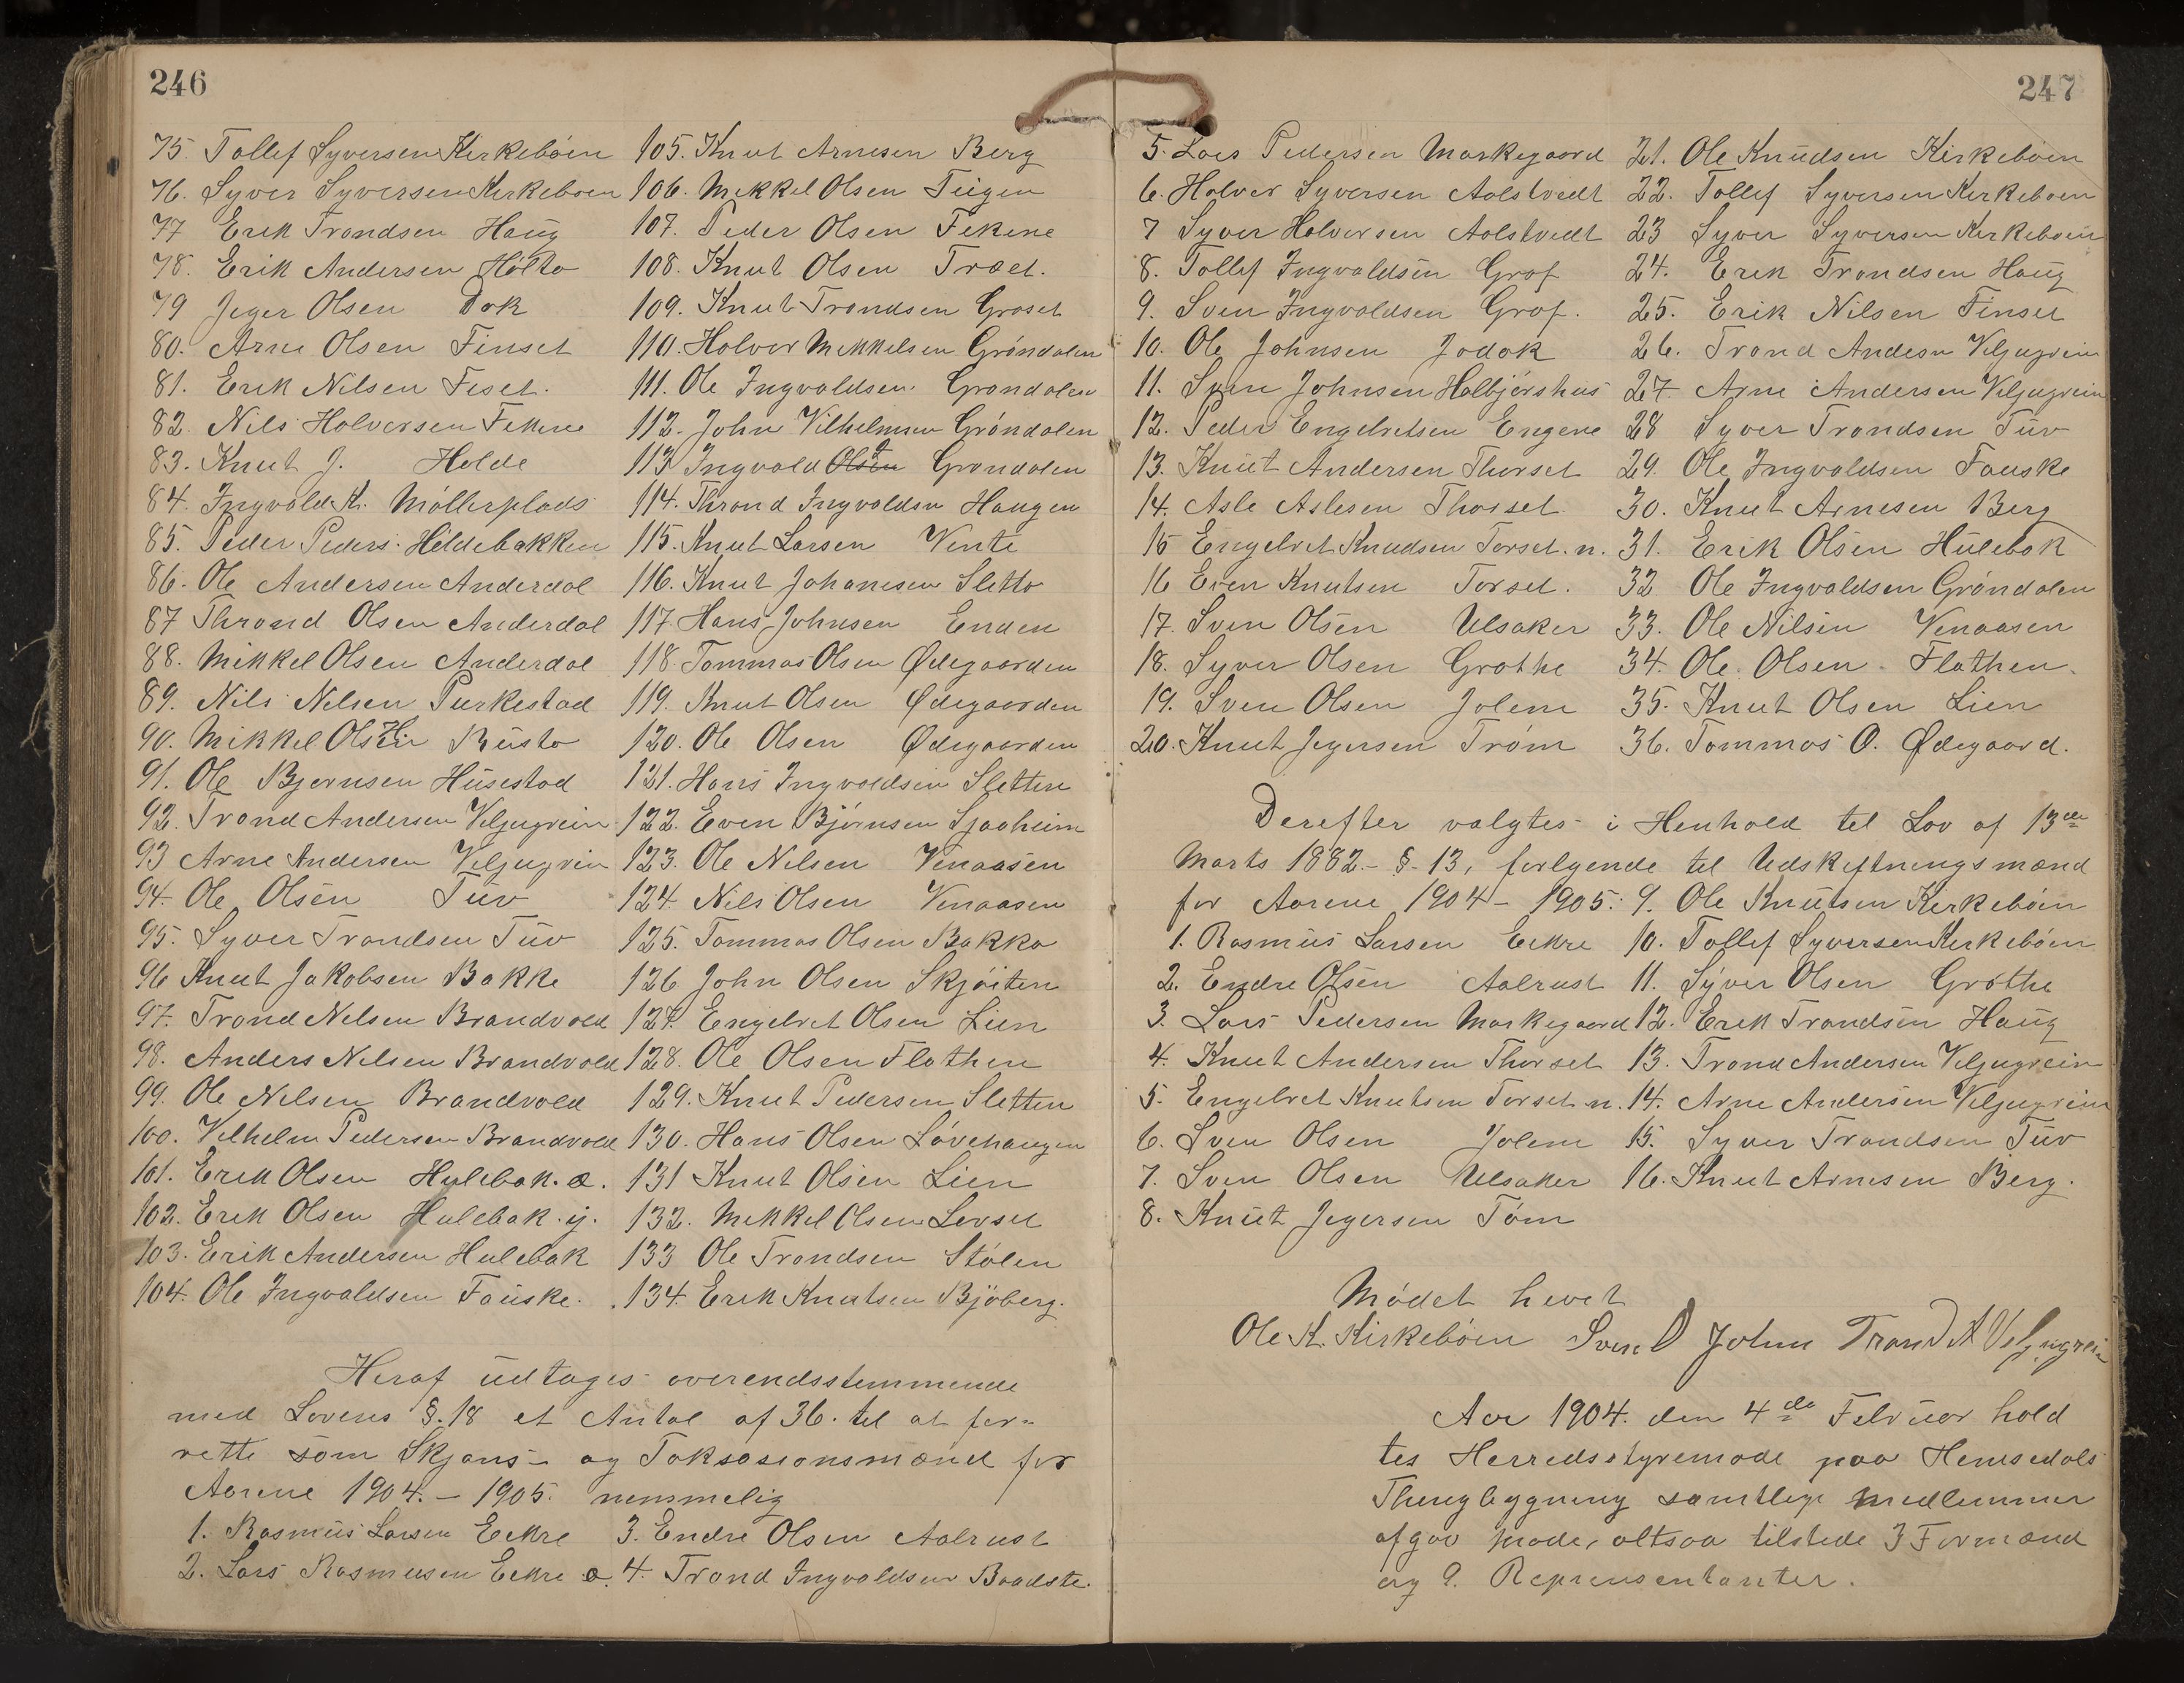 246
75. Tollef Syversen Kirkebøen
76. Syver Syversen Kirkeboen
77 Erik Trondsen Haug
78. Erik Andersen Holto
79 Jeger Olsen Dok
80. Arne Olsen Finset
81. Erik Nilsen Fiset.
82. Nils Holversen Fekene
83. Knut J. Helde
84. Ingvold K. Møllerplads
85. Peder Peders. Hildebakken
86. Ole Andersen Anderdal
87 Thrond Olsen Anderdal
88. Mikkel Olsen Anderdal
89. Nils Nilsen Purkestad
90. Mikkel Olsen Rusto
91. Ole Bjørnsen Husestad
92. Trond Andersen Veljugrein
93 Arne Andersen Veljugrein
94. Ole Olsen Tuv
95. Syver Trondsen Tuv
96 Knut Jakobsen Bakke
97. Trond Nelsen Brandvold
98. Anders Nelsen Brandvold
99. Ole Nelsen Brandvold
100. Vilhelm Pedersen Brandvold
101. Erik Olsen Hulebak. æ.
102. Erik Olsen Hulebak. y.
103. Erik Andersen Hulebak
104. Ole Ingvaldsen Fauske.
105. Knut Arnesen Berg
106. Mekkel Olsen Tugen
107. Peder Olsen Fekene
108. Knut Olsen Træet.
109. Knut Trondsen Groset
110. Holver Mekkelsen Grøndalen
111. Ole Ingvoldsen Grøndalen
112. John Vilhelmsen Grøndalen
113 Ingvold Olsen Grøndalen
114. Thrond Ingvoldsn Haugen
115. Knut Larsen Vente
116. Knut Johannesen Sletto
117. Hans Johnsen Enden
118. Tommas Olsen Ødegaarden
119. Knut Olsen Ødegaarden
120. Ole Olsen Ødegaarden
121. Hans Ingvoldsen Sletten
122. Even Bjørnsen Sjaaheim
123. Ole Nelsen Venaasen
124. Nils Olsen Venaasen
125. Tommas Olsen Bakko
126 John Olsen Skjøiten
127. Engebret Olsen Lien
128. Ole Olsen Flathen
129. Knut Pedersen Sletten
130. Hans Olsen Løvehaugen
131 Knut Olsen Lien
132. Mekkel Olsen Levset
133 Ole Trondsen Stølen
134. Erik Knutsen Bjøberg.
Heraf udtages overendsstemmende
med Lovens §. 18 et Antal af 36. til at for-
rette som Skjøns- og Taksasionsmænd for
Aarene 1904. – 1905. nemmelig
1. Rasmus Larsen Eekre 3. Endre Olsen Aalrust
2. Lars Rasmusen Eekre æ. 4. Trond Ingvoldsen Baadste.
247
5. Lars Pedersen Markegaard
6. Holver Syversen Aalstvedt
7 Syver Holversen Aalstvedt
8. Tollef Ingvaldsen Grøf
9. Sven Ingvoldsen Grøf.
10. Ole Johnsen Jodok
11. Sven Johnsen Holbjørshus
12. Peder Engebretsen Engene
13. Knut Andersen Thorset
14. Asle Aslesen Thorset
15 Engebret Knudsen Torset. n.
16 Even Knutsen Torset.
17. Sven Olsen Ulsaker
18. Syver Olsen Grøthe
19. Sven Olsen Jolem
20. Knut Jegersen Trøm
21. Ole Knudsen Kirkebøen
22. Tollef Syversen Kirkeboen
23 Syver Syversen Kirkeboen
24. Erik Trondsen Haug
25. Erik Nilsen Finset
26. Trond Andersn Veljugrein
27. Arne Andersen Veljugrein
28 Syver Trondsen Tuv
29. Ole Ingvoldsen Fauske
30. Knut Arnesen Berg
31. Erik Olsen Hulebak
32 Ole Ingvaldsen Grøndalen
33. Ole Nilsen Venaasen
34. Ole Olsen Flathen.
35. Knut Olsen Lien
36. Tommas O. Ødegaard.
Derefter valgtes i Henhold til Lov af 13de
Marts 1882. – § 13, følgende til Udskiftningsmænd
for Aarene 1904 – 1905:
1. Rasmus Larsen Eekre
2. Endre Olsen Aalrust
3. Lars Pedersen Markegaard
4. Knut Andersen Thorset
5. Engebret Knutsen Torset n.
6. Sven Olsen Jolem
7. Sven Olsen Ulsaker
8. Knut Jegersen Tøm
9. Ole Knutsen Kirkebøen
10. Tollef Syversen Kirkebøen
11. Syver Olsen Grøthe
12. Erik Trondsen Haug
13. Trond Andersen Veljugrein
14. Arne Andersen Veljugrein
15. Syver Trondsen Tuv
16. Knut Arnesen Berg.
Mødet hevet
Ole K. Kirkebøen Sven O Jolem Trond A Veljugrein
Aar 1904. den 4de Februar hold
tes Herredsstyremøde paa Hemsedals
Thingbygning samtlige Medlemmer
afgav møde, altsaa tilstede 3 Formænd
og 9. Reprensentanter.